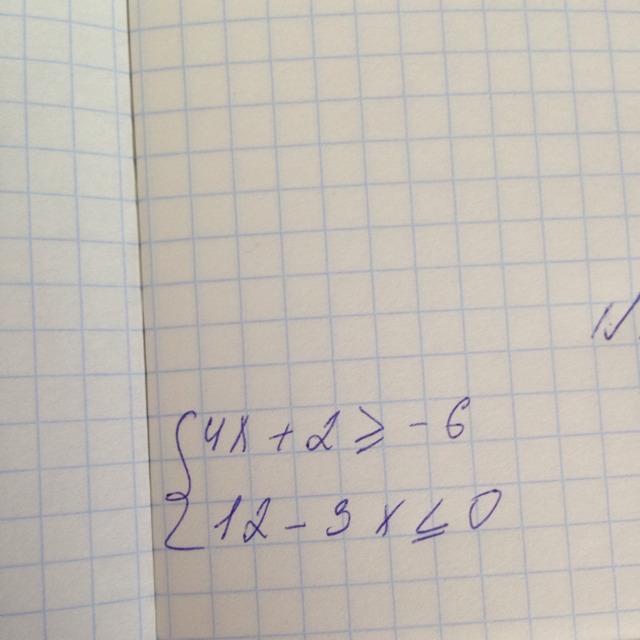 { 4x + 2 ≥ -6
12 - 3x ≤ 0